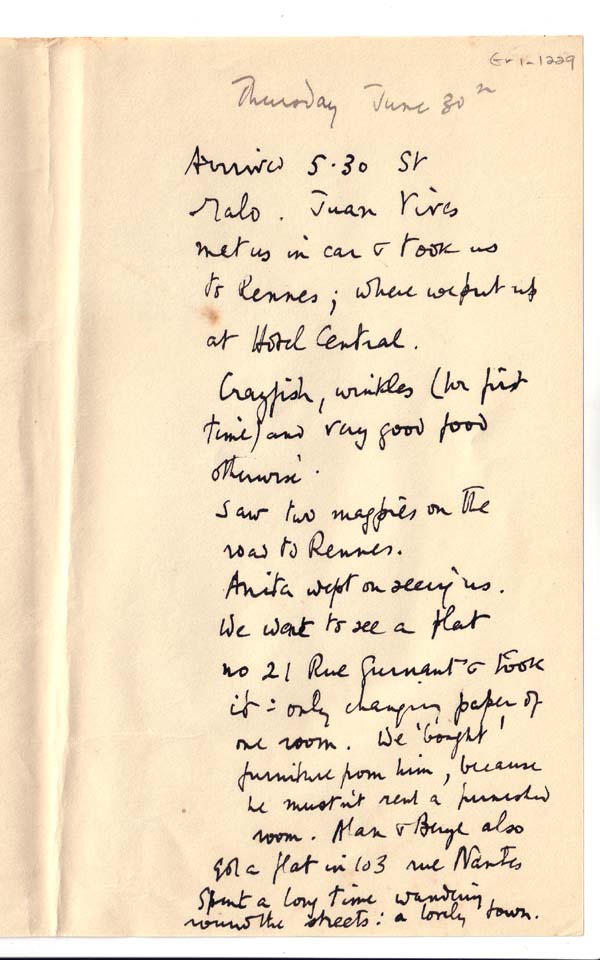 Er 1-1229
Thursday June 30th
Arrived 5.30 St
Malo. Juan Vives
met us in car & took us
to Rennes; where we put up
at Hotel Central.
Crayfish, winkles (for first
time) and very good food
otherwise.
Saw two magpies on the
road to Rennes.
Anita wept on seeing us.
We went to see a flat
no 21 Rue & took
it: only changing paper of
one room. We 'bought'
furniture from him, because
he mustn't rent a furnished
room. Alan & also
got a flat in 103 rue Nantes
Spent a long time wandering
round the streets: a lovely town.